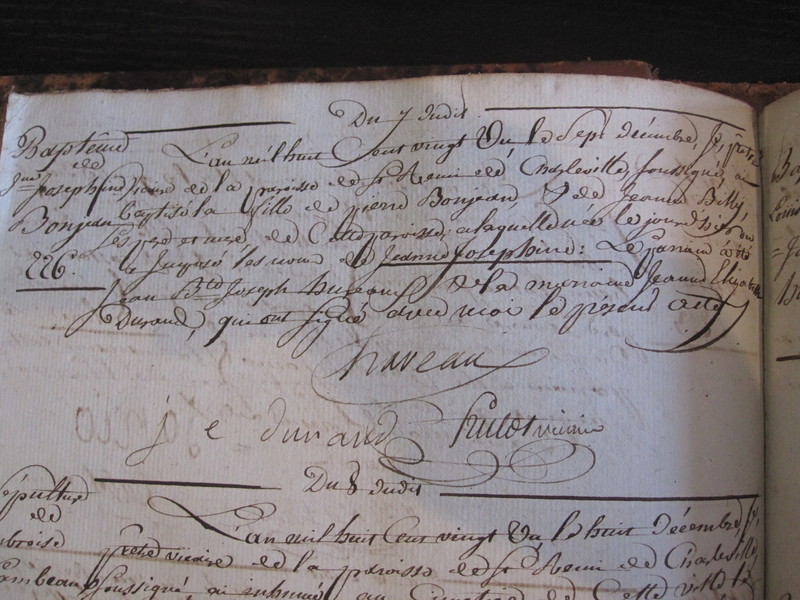 Du 7 dudit.
Baptême
de
Jnne Josephine
Bonjean
226e
L'an mil huit Cent vingt Un le Sept décembre, Je, prêtre
vicaire de la paroisse de St Remi de Charleville, soussigné, ai
baptisé la fille de pierre Bonjean & de Jeanne Billy,
Ses pere et mere de Cette paroisse, a laquelle née le jour d'hier on
a Imposé les noms de Jeanne Josephine: Le parrain a été
Jean Bte Joseph & la marraine Jeanne Elizabeth
Durand, qui ont signé avec moi le présent acte
j e durand hulot vicaire
Du 8 dudit
Sépulture
de
L'an mil huit Cent vingt Un le huit Décembre, Je,
prêtre vicaire de la paroisse de St Remi de Charleville,
soussigné, ai inhumé au Cimetière de Cette ville le